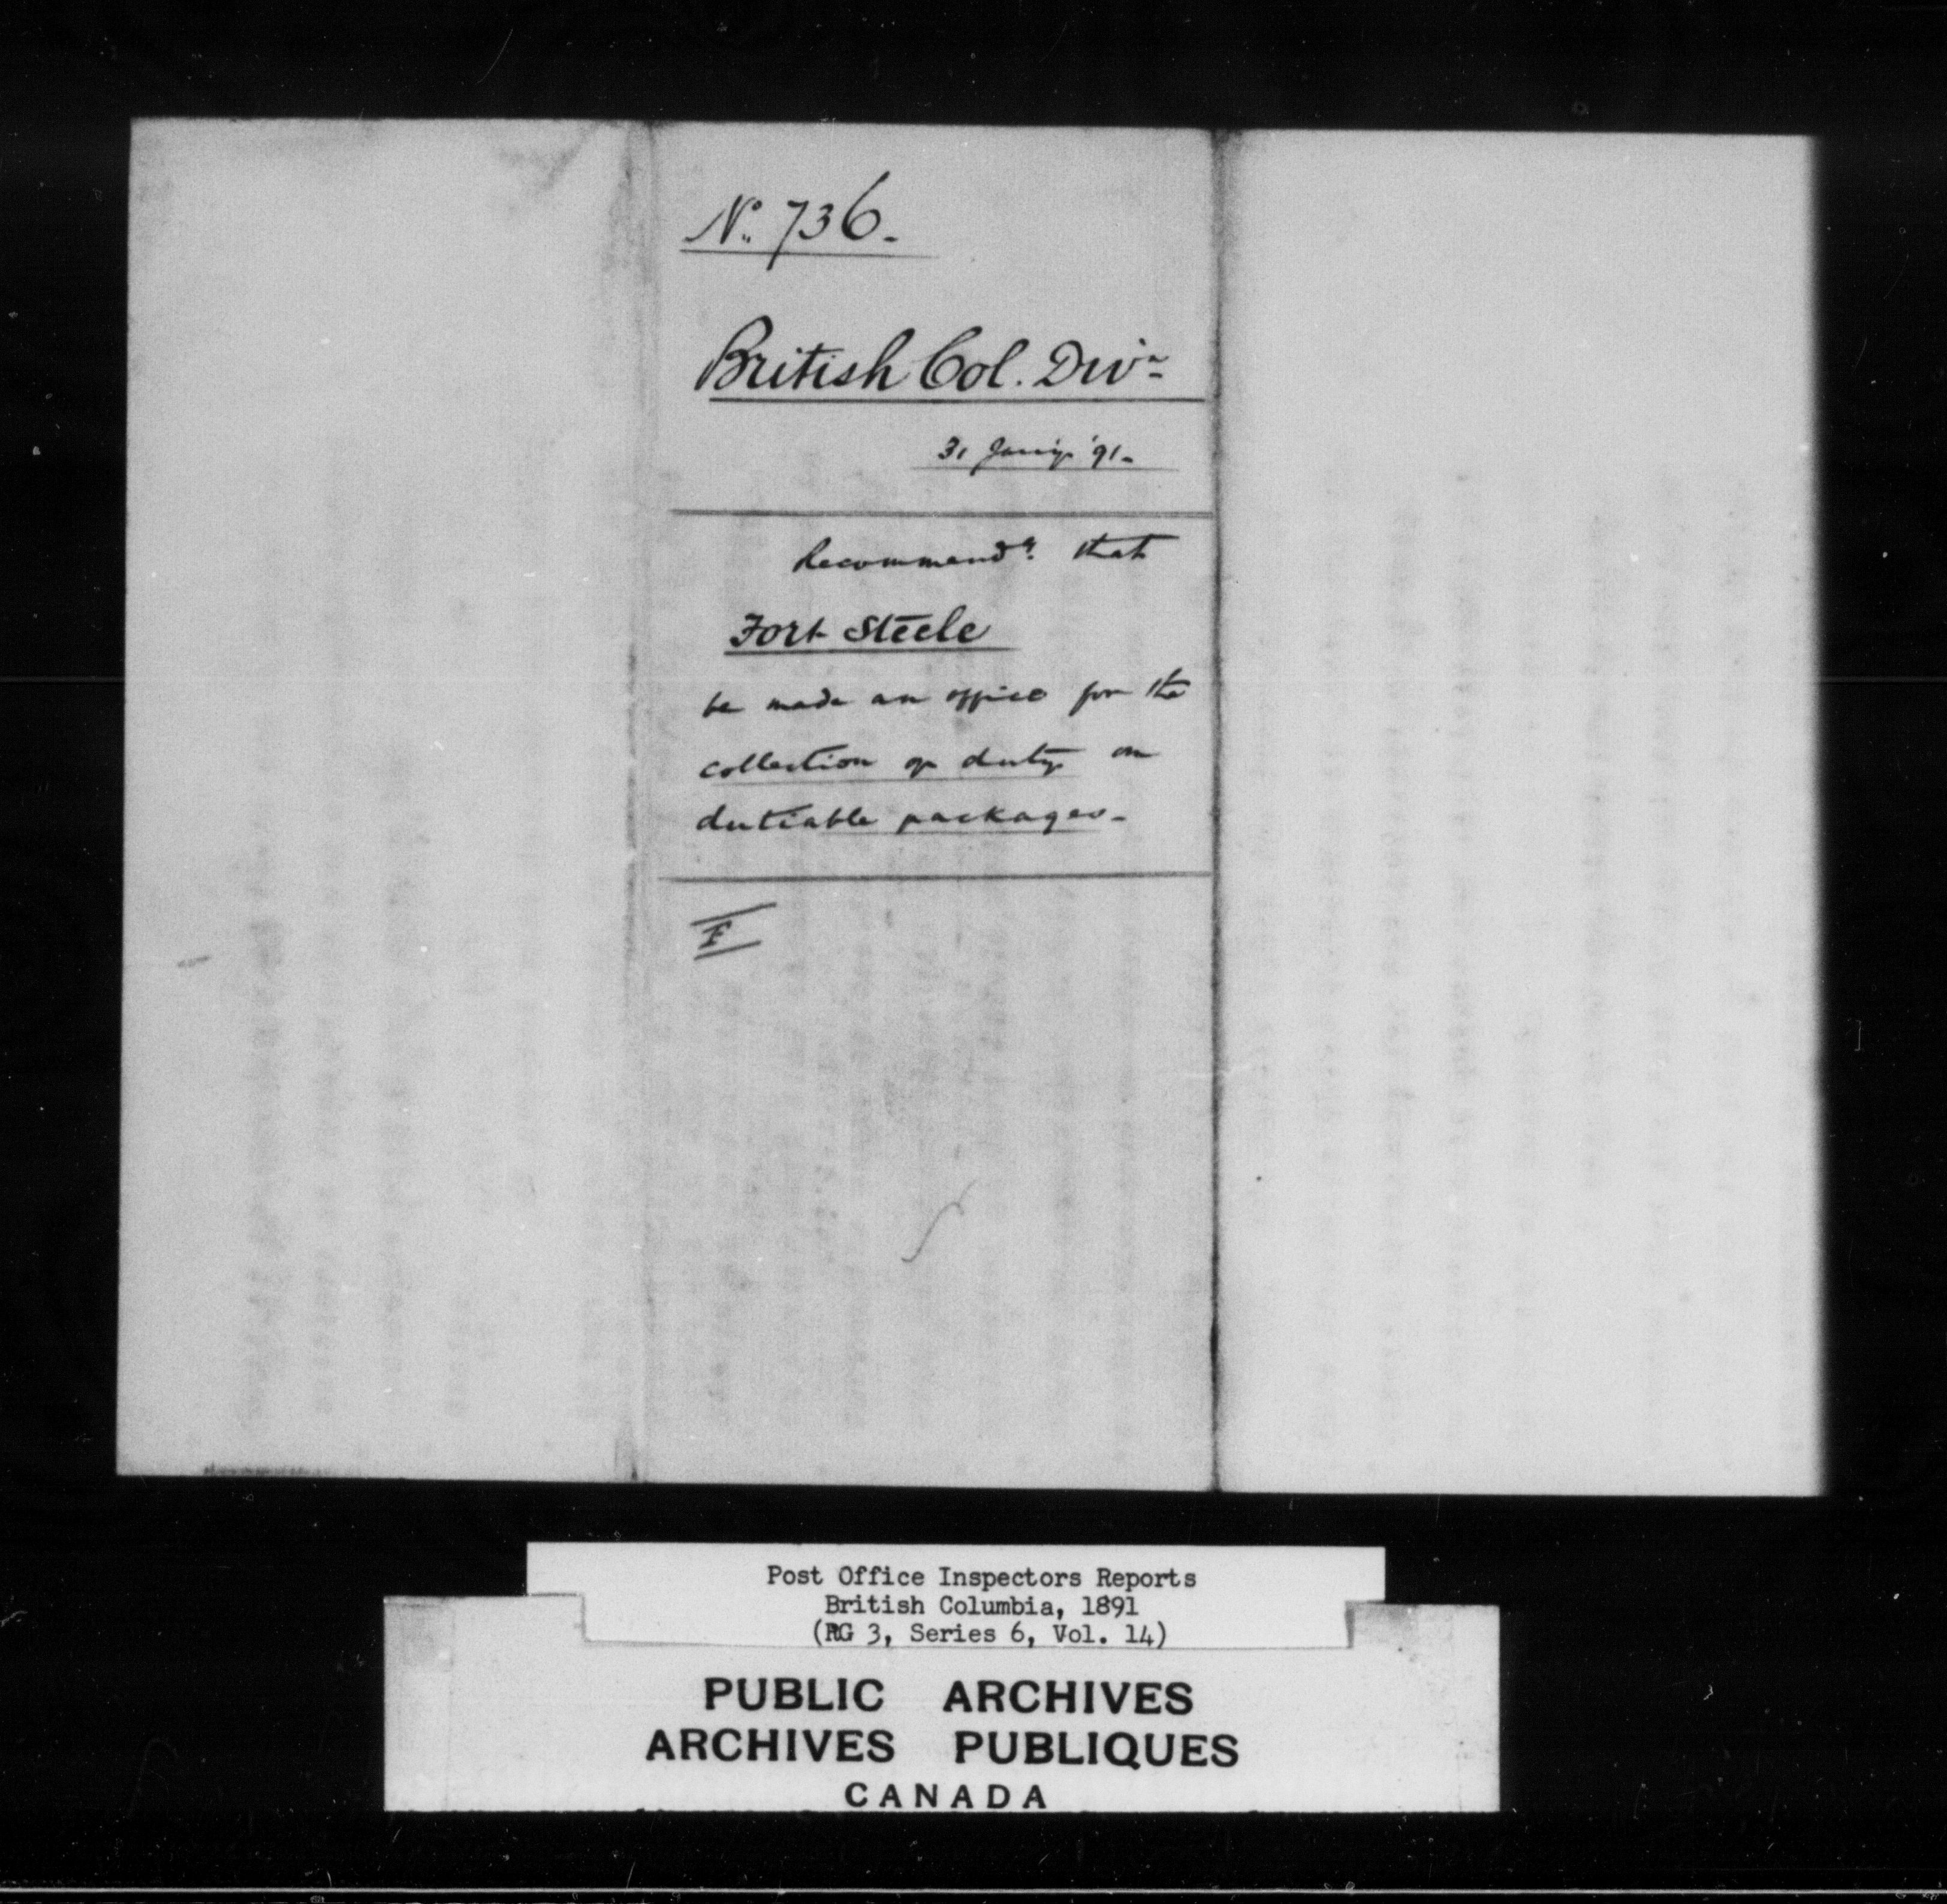 No. 736.
British Col. Divn
31 Jany '91.
Recommendg. that
Fort Steele
be made an office for the
collection of duty on
dutiable packages.
F
Post Office Inspectors Reports
British Columbia, 1891
(RG 3, Series 6, Vol. 14)
PUBLIC ARCHIVES
ARCHIVES PUBLIQUES
CANADA